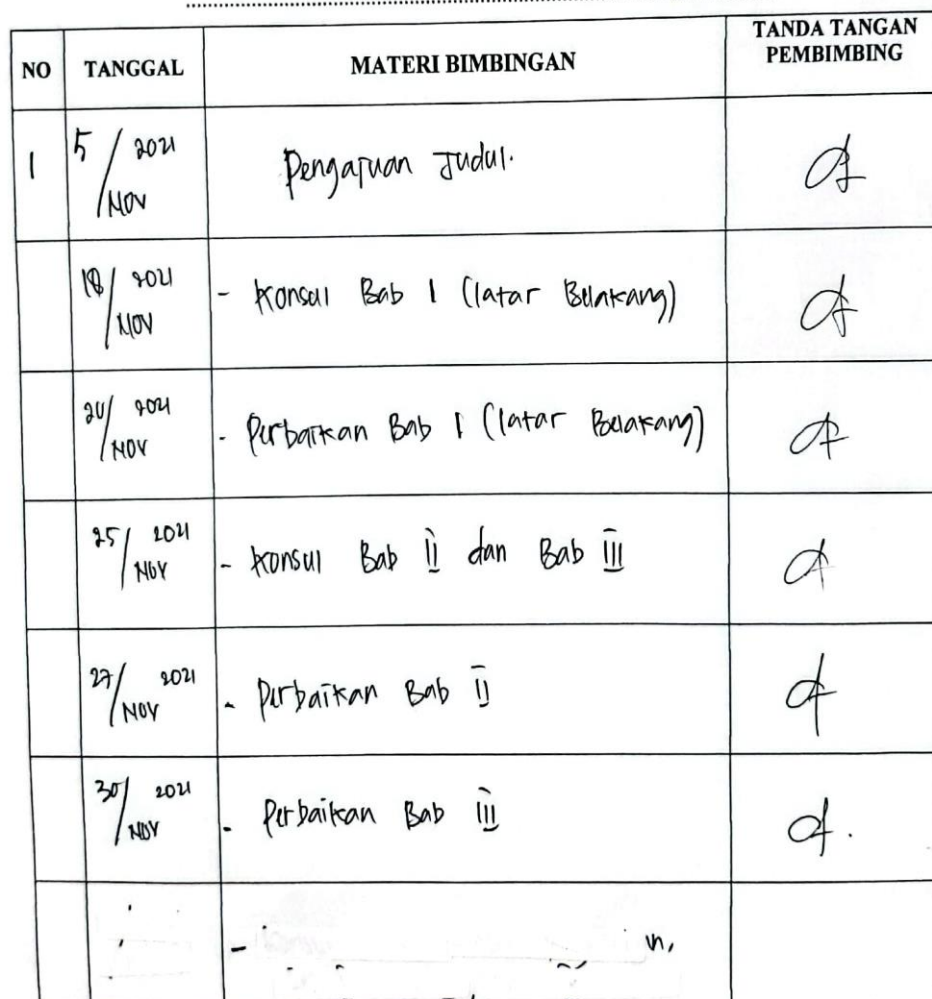 NO TANGGAL MATERI BIMBINGAN TANDA TANGAN PEMBIMBING
1 5/NOV 2021 Pengajuan Judul.
18/NOV 2021 - Konsul Bab 1 (latar Belakang)
NOV 2021 - Perbaikan Bab 1 (latar Belakang)
25/NOV 2021 - Konsul Bab II dan Bab III
27/NOV 2021 - Perbaikan Bab II
30/NOV 2021 - Perbaikan Bab III